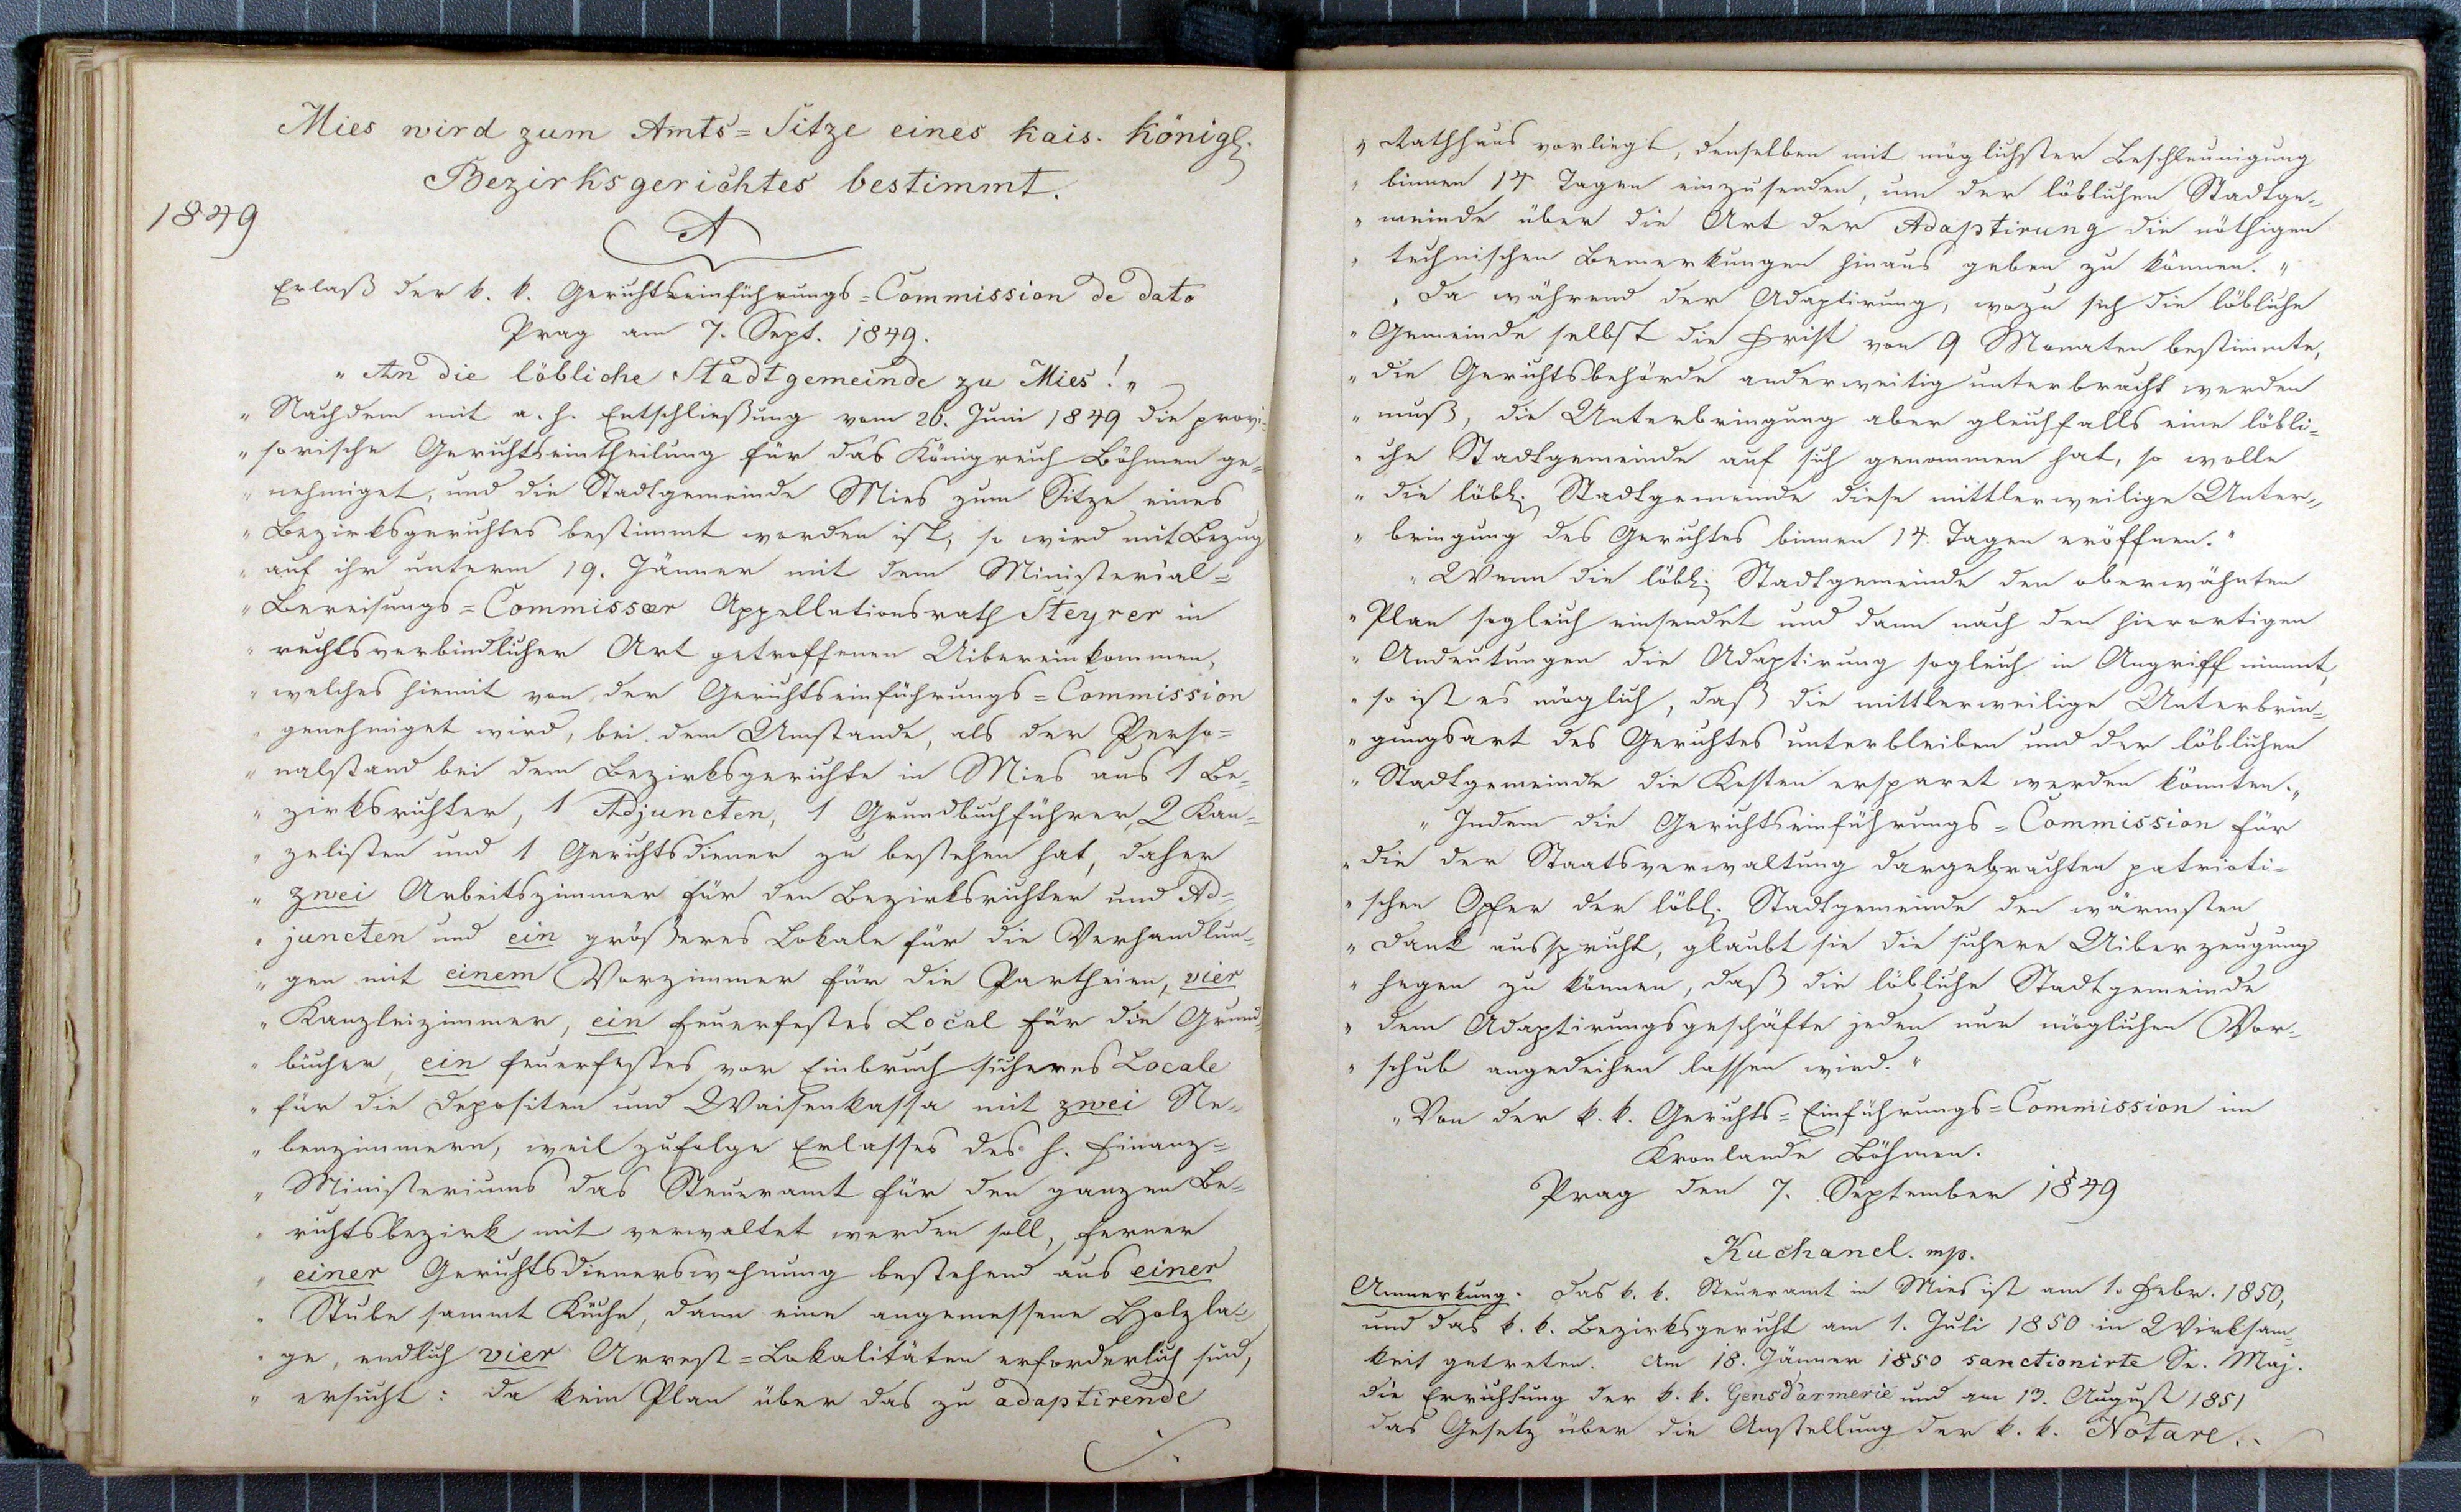 Mies wird zum Amts=Sitze eines kais. königl.
Bezirksgerichtes bestimmt.
1849
A
Erlaß der k. k. Gerichtseinführungs=Commission de dato
Prag am 7. Sept. 1849.
„ An die löbliche Stadtgemeinde zu Mies! „
„ Nachdem mit a. h. Entschließung vom 26. Juni 1849 die provi=
„ sorische Gerichtseintheilung für das Königreich Böhmen ge=
„ nehmiget, und die Stadtgemeinde Mies zum Sitze eines
„ Bezirksgerichtes bestimmt worden ist, so wird mit Bezug
„ auf ihr unterm 19. Jänner mit dem Ministerial=
„ Bereisungs=Commissær Appellationsrath Steyrer in
„ rechtsverbindlicher Art getroffenen Uibereinkommen,
„ welches hiemit von der Gerichtseinführungs=Commission
„ genehmiget wird, bei dem Umstande, als der Perso=
„ nalstand bei dem Bezirksgerichte in Mies aus 1 Be=
„ zirksrichter, 1 Adjuncten, 1 Grundbuchführer, 2 Kan=
„ zelisten und 1 Gerichtsdiener zu bestehen hat, daher
„ zwei Arbeitszimmer für den Bezirksrichter und Ad=
„ juncten und ein größeres Lokale für die Verhandlun=
„ gen mit einem Vorzimmer für die Partheien, vier
„ Kanzleizimmer, ein feuerfestes Local für die Grund=
„ bücher, ein feuerfestes vor Einbruch sicheres Locale
„ für die Depositen und Waisenkassa mit zwei Ne=
„ benzimmern, weil zufolge Erlasses des h. Finanz=
„ Ministeriums das Steueramt für den ganzen Be=
„ richtsbezirk mit verwaltet werden soll, ferner
„ einer Gerichtsdienerswohnung bestehend aus einer
„ Stube sammt Küche, dann eine angemessene Holzla=
„ ge, endlich vier Arrest=Lokalitäten erforderlich sind,
„ ersucht: da kein Plan über das zu adaptirende
„ Rathhaus vorliegt, denselben mit möglichster Beschleunigung
„ binnen 14 Tagen einzusenden, um der löblichen Stadtge=
„ meinde über die Art der Adaptirung die nöthigen
„ technischen Bemerkungen hinaus geben zu können. „
„ Da während der Adaptirung, wozu sich die löbliche
„ Gemeinde selbst die Frist von 9 Monaten bestimmte,
„ die Gerichtsbehörde anderweitig unterbracht werden
„ muß, die Unterbringung aber gleichfalls eine löbli=
„ che Stadtgemeinde auf sich genommen hat, so wolle
„ die löbl. Stadtgemeinde diese mittlerweilige Unter=
„ bringung des Gerichtes binnen 14. Tagen eröffnen. „
„ Wenn die löbl. Stadtgemeinde den oberwähnten
„ Plan sogleich einsendet und dann nach den hierortigen
„ Andeutungen die Adaptirung sogleich in Angriff nimmt,
„ so ist es möglich, daß die mittlerweilige Unterbrin=
„ gungsart des Gerichtes unterbleiben und der löblichen
„ Stadtgemeinde die Kosten ersparet werden könnten. „
„ Indem die Gerichtseinführungs=Commission für
„ die der Staatsverwaltung dargebrachten patrioti=
„ schen Opfer der löbl. Stadtgemeinde den wärmsten
„ Dank ausspricht, glaubt sie die sichere Uiberzeugung
„ hegen zu können, daß die löbliche Stadtgemeinde
„ dem Adaptirungsgeschäfte jeden nur möglichen Vor=
„ schub angedeihen lassen wird. „
„ Von der k. k. Gerichts=Einführungs=Commission im
Kronlande Böhmen.
Prag den 7. September 1849
Kuchanel. mp.
Anmerkung. Das k. k. Steueramt in Mies ist am 1. Febr. 1850,
und das k. k. Bezirksgericht am 1. Juli 1850 in Wirksam=
keit getreten. Am 18. Jänner 1850 sanctionirte Se. Maj.
die Errichtung der k. k. Gensdarmerie und am 13. August 1851
das Gesetz über die Anstellung der k. k. Notare.